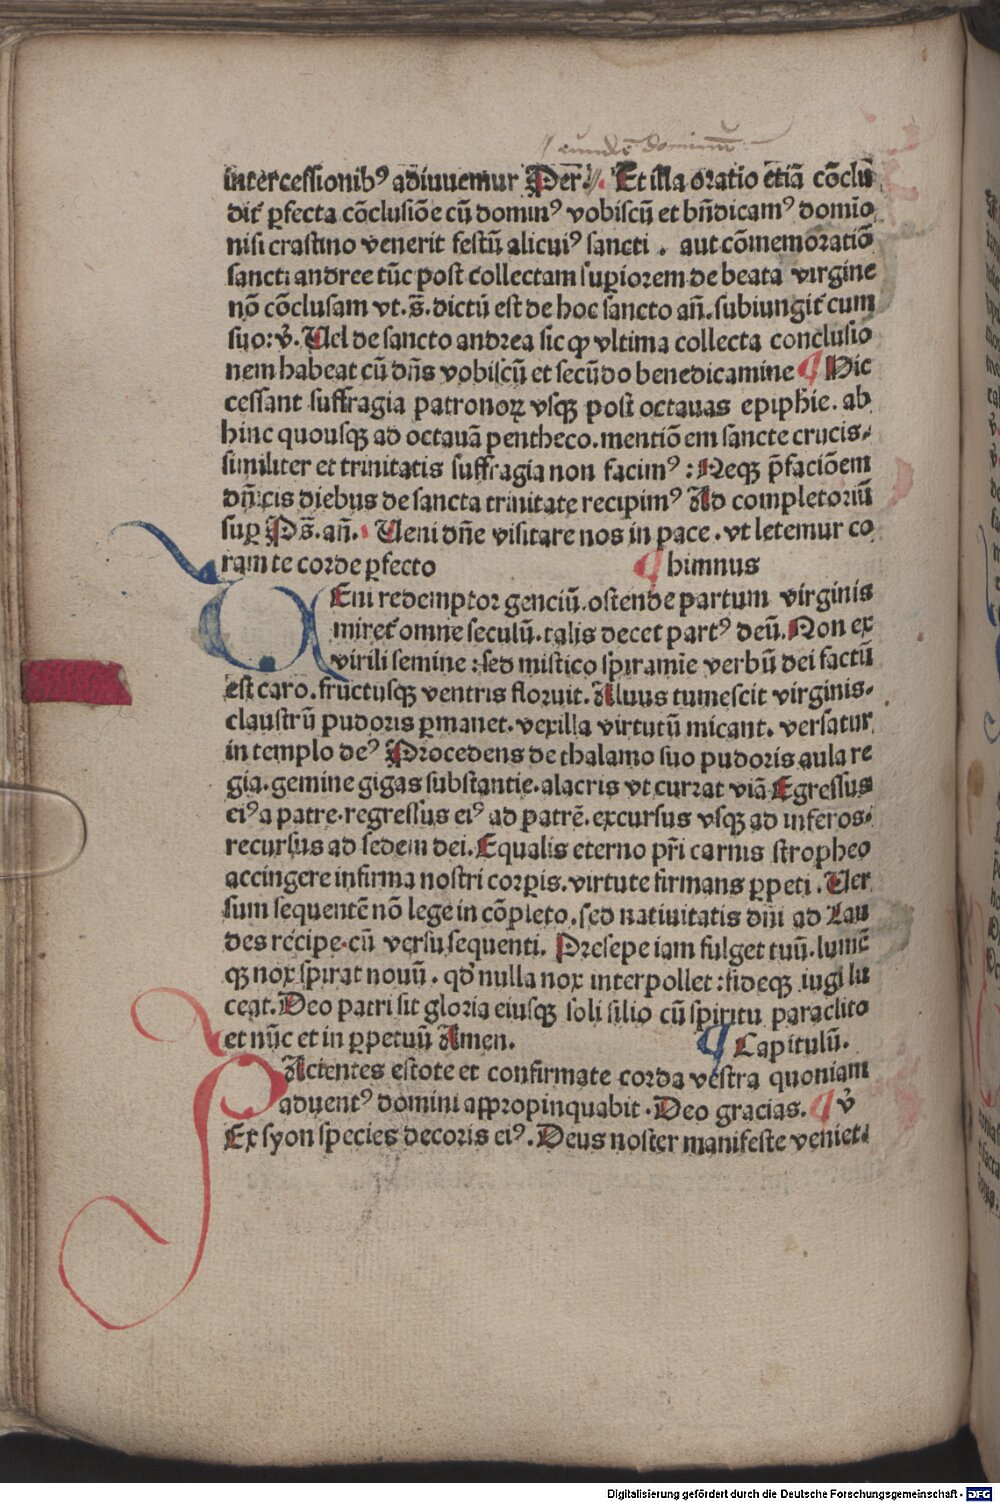 eundē dominum
intercessionibꝰ adiuuemur Per. Et illa oratio etiā cōclu
dit᷑ ꝑfecta cōclusiōe cū dominꝰ vobiscū et bn̄dicamꝰ domīo
nisi crastino venerit festū alicuiꝰ sancti . aut cōmemoratiō
sancti andree tūc post collectam suꝑiorem de beata virgine
nō cōclusam vt. s̄. dictū est de hoc sancto an̄. subiungit᷑ cum
suo: v̄. Uel de sancto andrea sic ꝙ vltima collecta conclusio
nem habeat cū dn̄s vobiscū et secūdo benedicamine ¶ Hic
cessant suffragia patronoꝝ vsqꝫ post octauas epiphie. ab
hinc quousqꝫ ad octauā pentheco. mentiōem sancte crucis⸗
similiter et trinitatis suffragia non facimꝰ : Neqꝫ p̄faciōem
dn̄icis diebus de sancta trinitate recipimꝰ Ad completoriū
suꝑ Ps̄. an̄. Ueni dn̄e visitare nos in pace . vt letemur co
ram te corde ꝑfecto ¶ himnus
VEni redemptor genciū. ostende partum virginis
miret᷑ omne seculū. talis decet partꝰ deū. Non ex
virili semine : sed mistico spiramīe verbū dei factū
est caro. fructusqꝫ ventris floruit. Aluus tumescit virginis.
claustrū pudoris ꝑmanet. vexilla virtutū micant. versatur
in templo deꝰ Procedens de thalamo suo pudoris aula re
gia. gemine gigas substantie. alacris vt currat viā Egressus
eiꝰ a patre. regressus eiꝰ ad patrē. excursus vsqꝫ ad inferos⸗
recursus ad sedem dei. Equalis eterno pr̄i carnis stropheo
accingere infirma nostri corꝑis. virtute firmans ꝑpeti. Uer
sum sequentē nō lege in cōpleto. sed natiuitatis dn̄i ad Lau
des recipe. cū versu sequenti. Presepe iam fulget tuū. lumē
qꝫ nox spirat nouū. qd̄ nulla nox interpollet : fideqꝫ iugi lu
ceat. Deo patri sit gloria eiusqꝫ soli filio cū spiritu paraclito
et nūc et in ꝑpetuū Amen. ¶ Capitulū.
PAcientes estote et confirmate corda vestra quoniam
aduentꝰ domini appropinquabit . Deo gracias. ¶ v̄
Ex syon species decoris eiꝰ. Deus noster manifeste veniet.
Digitalisierung gefördert durch die Deutsche Forschungsgemeinschaft - DFG